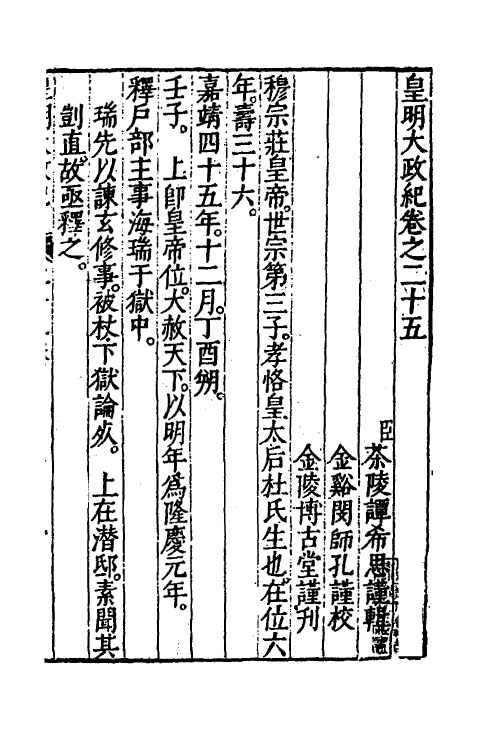 皇明大政紀卷之二十五
臣茶陵譚希思謹輯
金谿閔師孔謹校
金陵博古堂謹刊
穆宗莊皇帝。世宗第三子。孝恪皇太后杜氏生也。在位六
年。壽三十六。
嘉靖四十五年。十二月。丁酉朔。
壬子。　上卽皇帝位。大赦天下。以明年爲隆慶元年。
釋戶部主事海瑞于獄中。
瑞先以諫玄修事。被杖下獄論㱙。　上在潛邸。素聞其
剴直。故亟釋之。